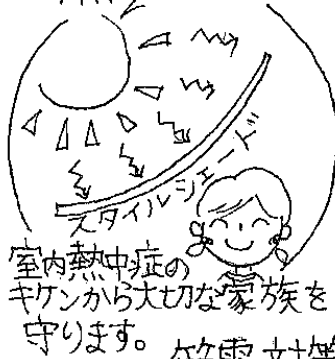 スタイルシェード
室内熱中症の
キケンから大切な家族を
守ります。